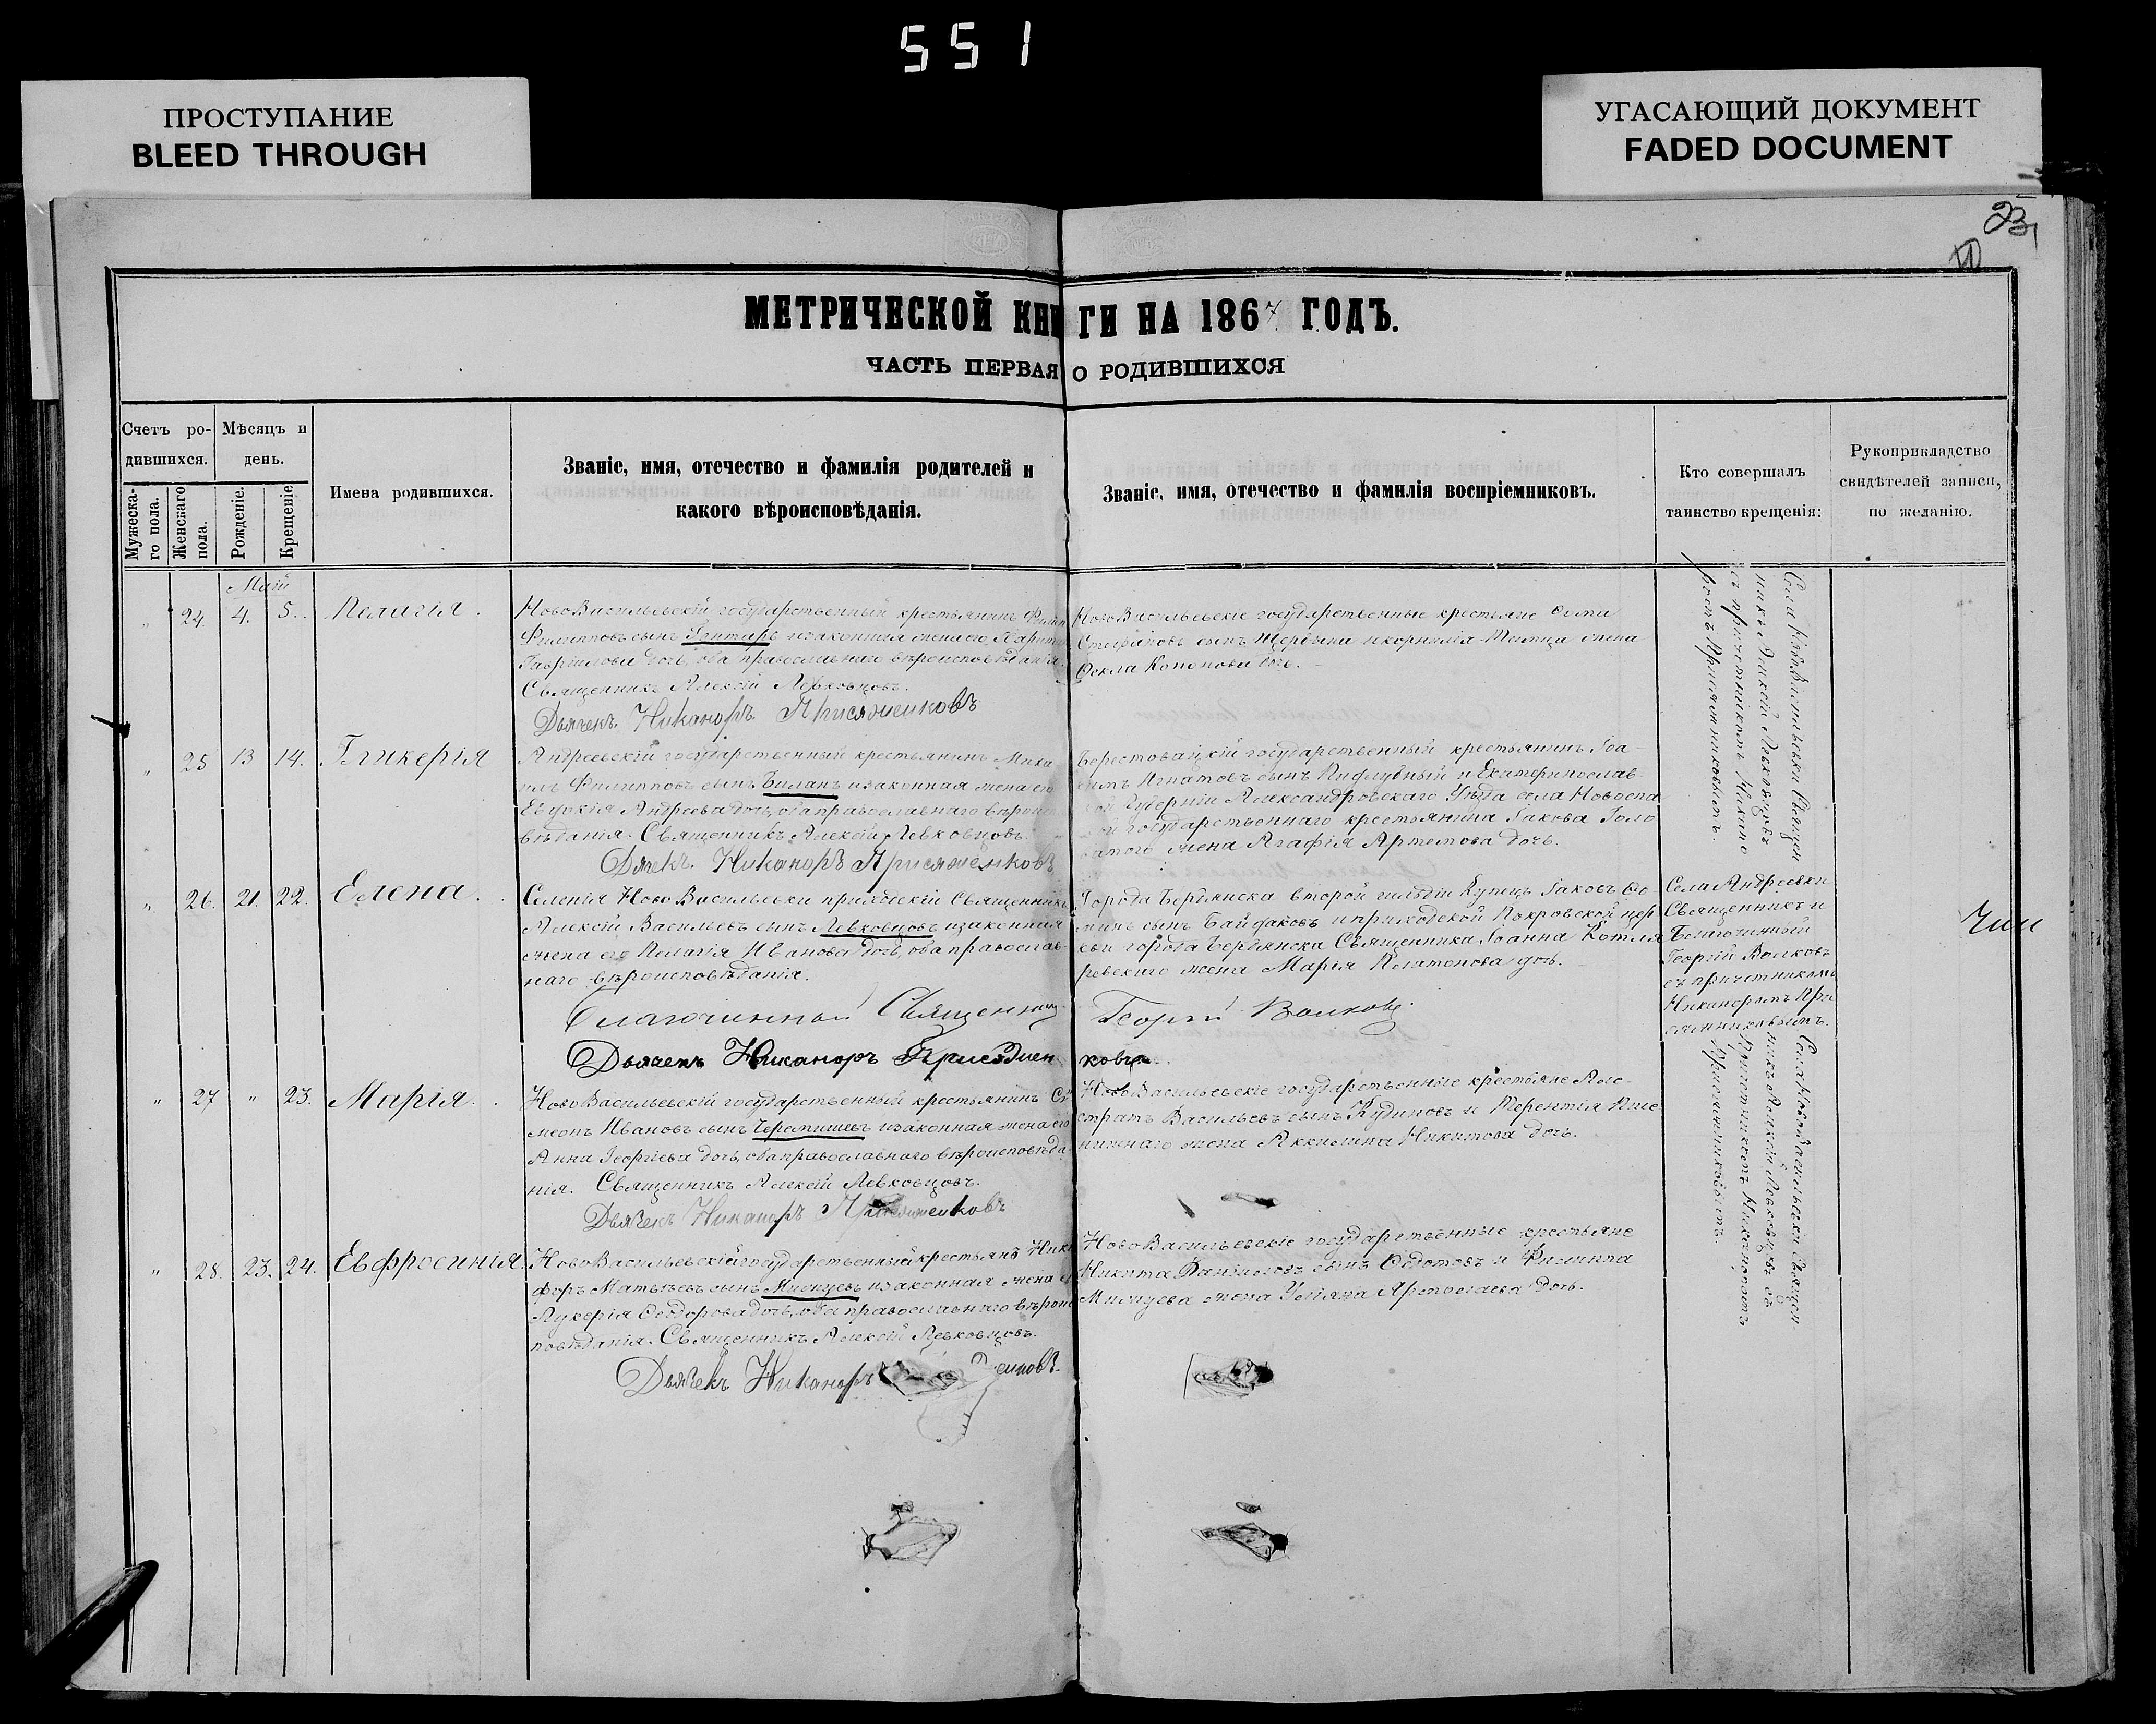 551
ПРОСТУПАНИЕ
BLEED THROUGH
УГАСАЮЩИЙ ДОКУМЕНТ
FADED DOCUMENT
23
МЕТРИЧЕСКОЙ КНИГИ НА 1867 ГОДЪ.
ЧАСТЬ ПЕРВАЯ О РОДИВШИХСЯ
Счетъ ро-
дившихся.
Мѣсяцъ и
день.
Мужеска-
го пола.
Женскаго
пола.
Рожденіе.
Крещеніе
Имена родившихся.
Званіе, имя, отечество и фамилія родителей и
какого вѣроисповѣданія.
Званіе, имя, отечество и фамилія воспріемниковъ.
Кто совершалъ
таинство крещенія:
Рукоприкладство
свидѣтелей записи,
по желанію.
Май
24 4. 5. Пелагія.
НовоВасильевскій государственный крестьянинъ
Филипповъ сынъ и законная жена его
Гавріилова дочь, оба православнаго вѣроисповѣданія.
Священникъ Алексій Левковцовъ.
Дьячекъ Никаноръ Присяжненковъ
НовоВасильевскіе государственные крестьяне
Стефановъ сынъ Щербина и жена
Ѳекла Кононова дочь.
Села НовоВасильевки Священ
никъ Алексій Левковцовъ
съ причетникомъ Никано
ромъ Присяжниковымъ.
25 13 14. Гликерія
Андреевскій государственный крестьянинъ Миха
илъ Филипповъ сынъ Биланъ и законная жена его
Евдокія Андреева дочь, оба православнаго вѣроис
вѣданія. Священникъ Алексій Левковцовъ.
Дьячекъ Никаноръ Присяжненковъ
Берестовацкій государственный крестьянинъ Іоа-
Игнатовъ сынъ и Екатеринослав-
ской Губерніи Александровскаго Уѣзда села Новоспа
государственнаго крестьянина Іакова Голо
ватого жена Агафія Артемова дочь.
26. 21. 22. Елена.
Селенія НовоВасильевки приходскій Священникъ
Алексій Васильевъ сынъ Левковцовъ и законная
жена его Пелагія Иванова дочь, оба православ-
наго вѣроисповѣданія.
Благочинный Священникъ Георгій Волковъ
Дьячекъ Никаноръ Присяжненковъ
Города Бердянска второй гильдіи Купецъ Іаковъ Ѳо
минъ сынъ Байдаковъ и приходской Покровской цер
кви города Бердянска Священника Іоанна Котля
ревскаго жена Марія Платонова дочь.
Села Андреевки
Священникъ и
Благочинный
Георгій Волковъ
съ причетникомъ
Никаноромъ При
сяжниковымъ.
27 " 23. Марія.
НовоВасильевскій государственный крестьянинъ Си
меонъ Ивановъ сынъ Черепишевъ и законная жена его
Анна Георгіева дочь, оба православнаго вѣроисповѣда
нія. Священникъ Алексій Левковцовъ.
Дьячекъ Никаноръ Присяжненковъ
НовоВасильевскіе государственные крестьяне
Васильевъ сынъ Кудиновъ и Терентія Пше
ничнаго жена Акилина Никитова дочь.
Села НовоВасильевки Священ
никъ Алексій Левковцовъ съ
Причетникомъ Никаноромъ
Присяжниковымъ.
28. 23. 24. Евфросинія.
НовоВасильевскій государственный крестьянъ Ники
форъ Матвѣевъ сынъ и законная жена его
Лукерія Ѳеодорова дочь, оба православнаго вѣроис
повѣданія. Священникъ Алексій Левковцовъ.
Дьячекъ Никаноръ
НовоВасильевскіе государственные крестьяне
Никита Даниловъ сынъ Ѳедотовъ и Филиппа
жена Уліяна дочь.